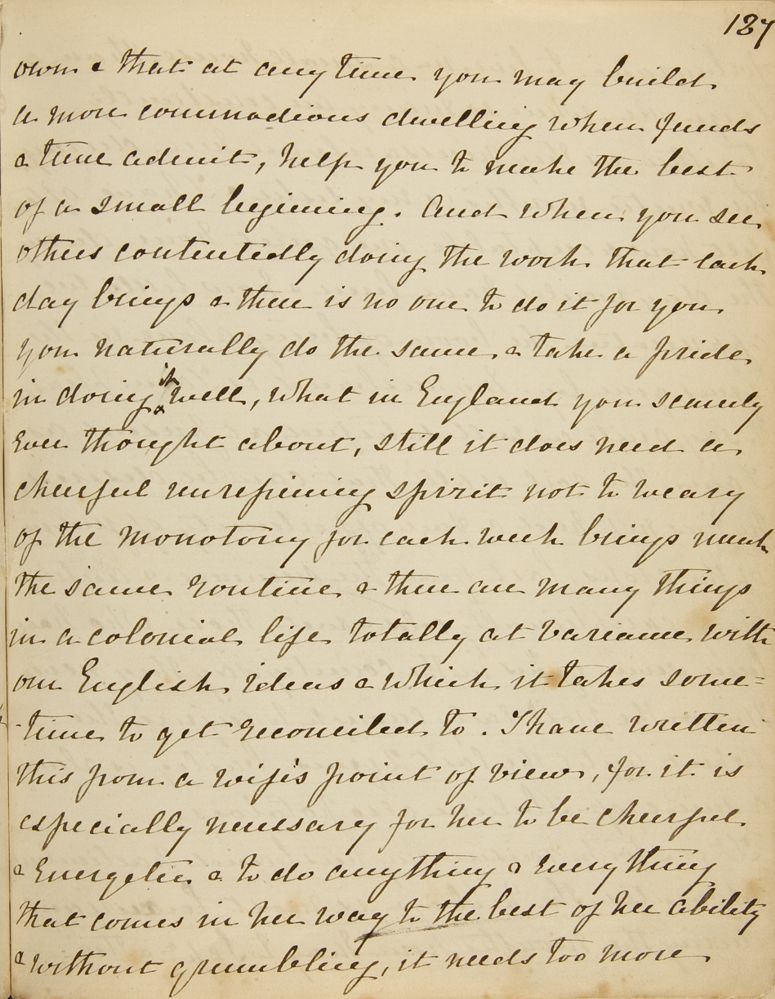 127
own & that at any time you may build
a more commodious dwelling when funds
& time admit, help you to make the best
of a small begining. And when you see
others contentedly doing the work that each
day brings & there is no one to do it for you
you naturally do the same & take a pride
in doing it well, what in England you scarcely
ever thought about, still it does need a
cheerful unrepining spirit not to weary
of the monotony for each week brings much
the same routine & there are many things
in a colonial life totally at variance with
our English ideas & which it takes some=
-time to get reconciled to. I have written
this from a wife's point of view, for it is
especially necessary for her to be cheerful
& energetic & to do anything & everything
that comes in her way to the best of her ability
& without grumbling, it needs too more